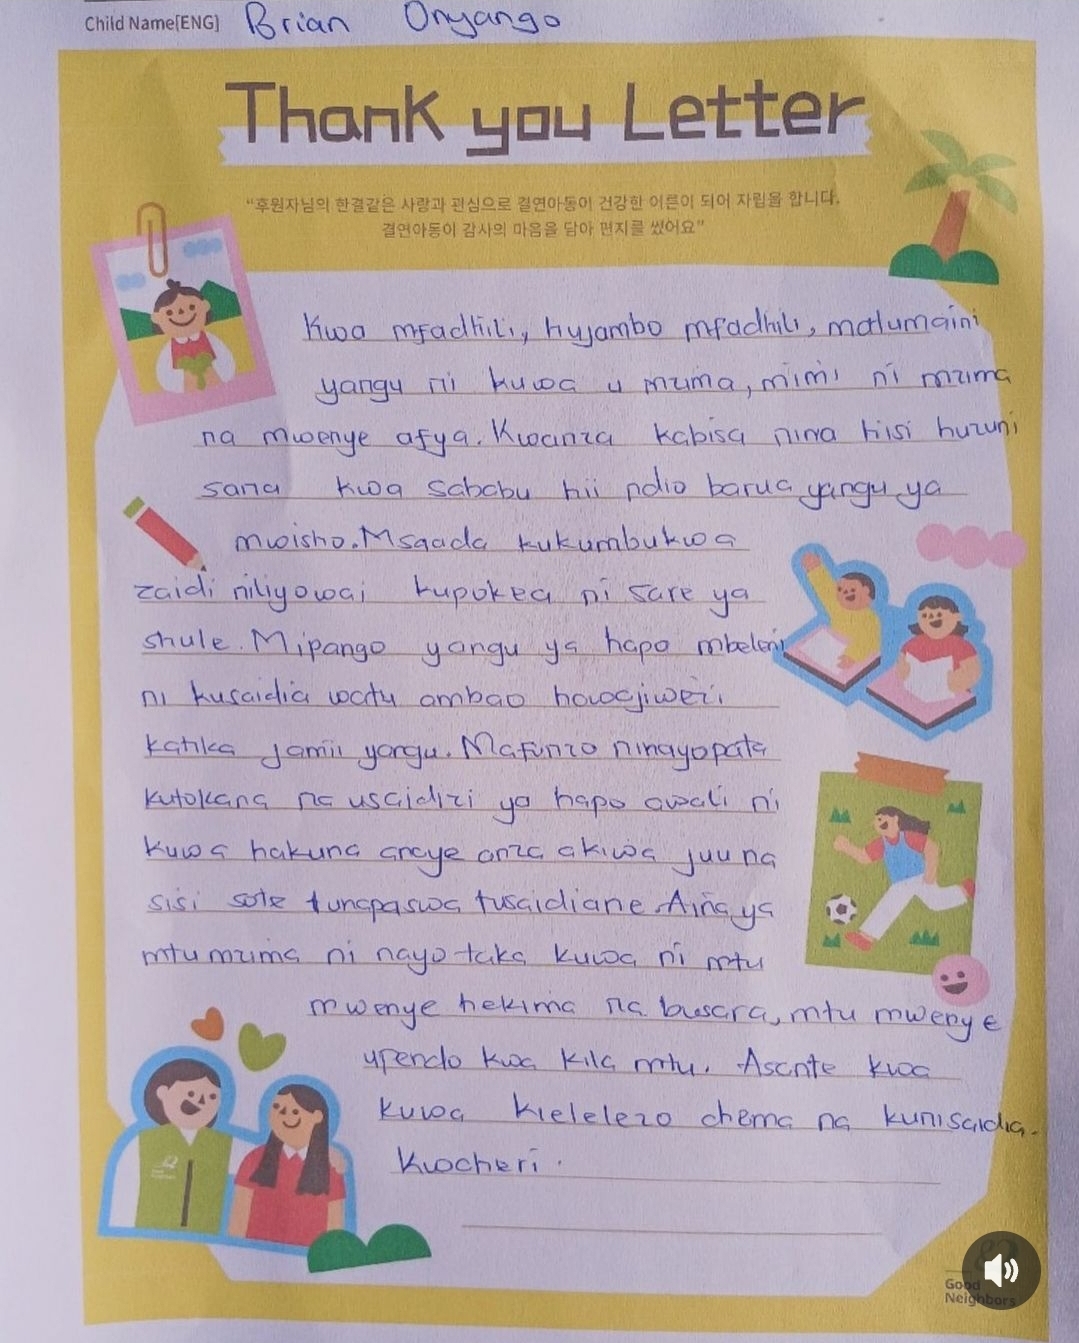 Child Name[ENG] Brian Onyango
Thank you Letter
“후원자님의 한결같은 사랑과 관심으로 결연아동이 건강한 어른이 되어 자립을 합니다.
결연아동이 감사의 마음을 담아 편지를 썼어요”
Kwa mfadhili, hujambo mfadhili, matumaini
yangu ni kuwa u mzima, mimi ni mzima
na mwenye afya. Kwanza kabisa nina hisi huzuni
sana kwa sababu hii ndio barua yangu ya
mwisho. Msaada kukumbukwa
zaidi niliyowai kupokea ni sare ya
shule. Mipango yangu ya hapo mbeleni
ni kusaidia watu ambao hawajiwezi
katika jamii yangu. Mafunzo ninayopata
kutokana na usaidizi ya hapo awali ni
kuwa hakuna anaye anza akiwa juu na
sisi sote tunapaswa tusaidiane. Aina ya
mtu mzima ni nayo taka kuwa ni mtu
mwenye hekima na busara, mtu mwenye
upendo kwa kila mtu. Asante kwa
kuwa kielelezo chema na kunisaidia.
Kwaheri.
Good
Neighbors